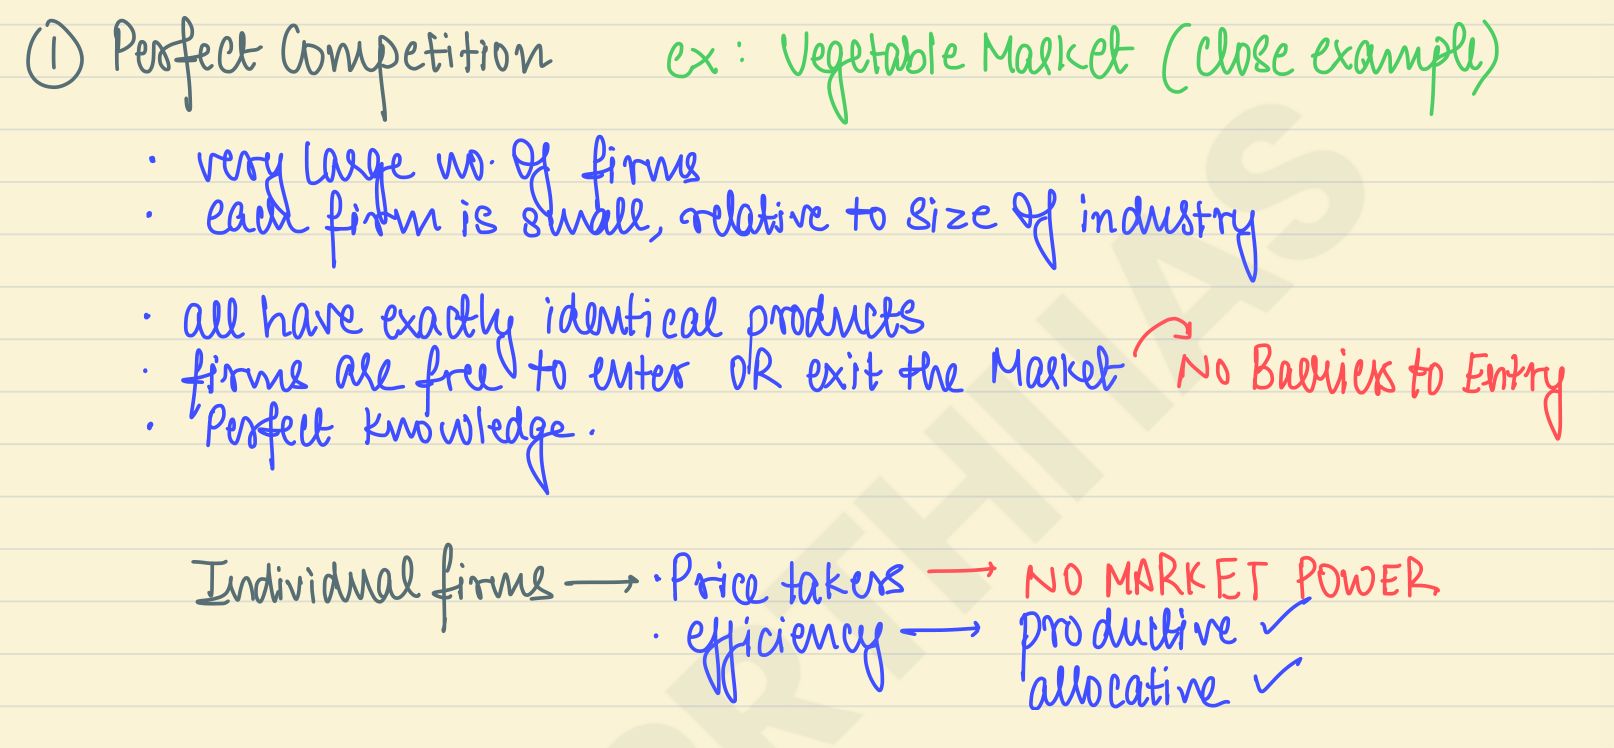 ① Perfect Competition ex: Vegetable Market (close example)
· very large no. of firms
· each firm is small, relative to size of industry
· all have exactly identical products
· firms are free to enter OR exit the Market → No Barriers to Entry
· Perfect knowledge.
Individual firms → · Price takers → NO MARKET POWER
· efficiency → productive ✓
allocative ✓
RTHI IAS